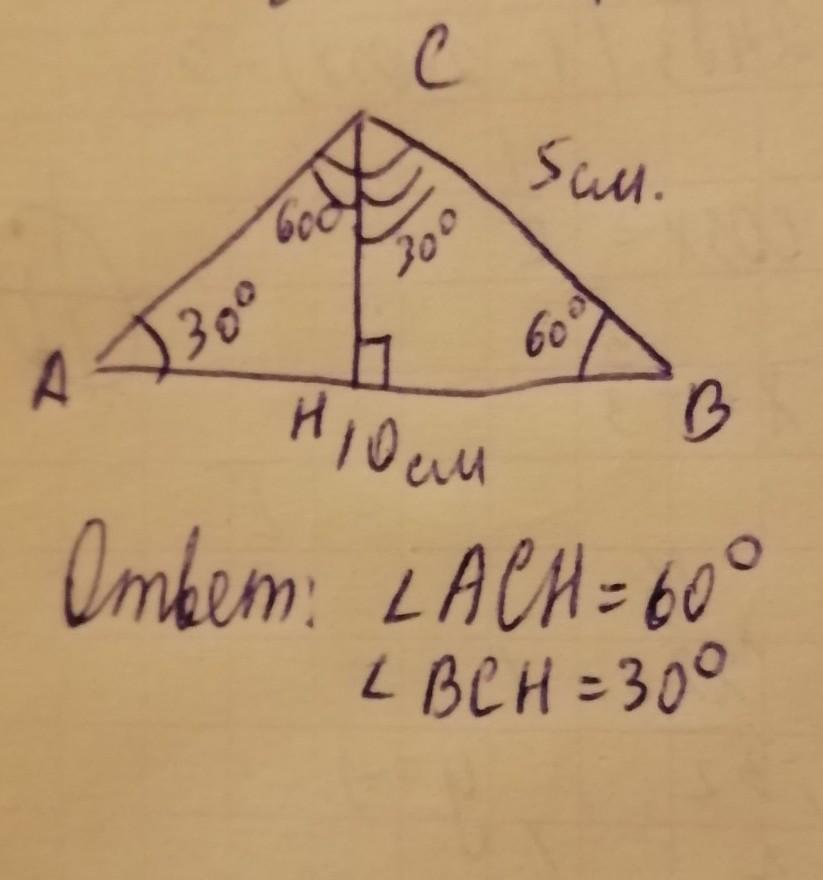 C
5 см.
60°
30°
30°
60°
A
H
B
10 см
Ответ: ∠ACH = 60°
∠BCH = 30°